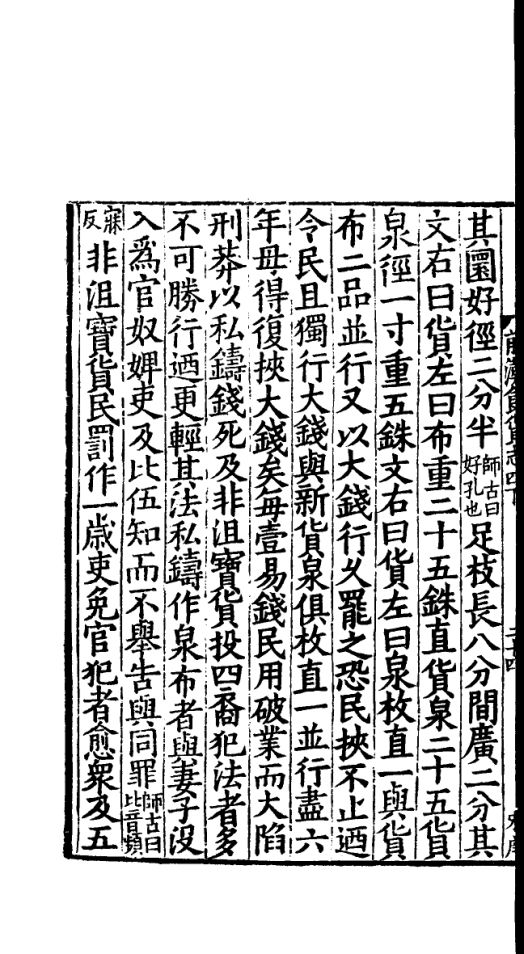 其圜好徑二分半師古曰好孔也足枝長八分間廣二分其
文右曰貨左曰布重二十五銖直貨泉二十五貨
泉徑一寸重五銖文右曰貨左曰泉枚直一與貨
布二品並行又以大錢行久罷之恐民挾不止迺
令民且獨行大錢與新貨泉俱枚直一並行盡六
年毋得復挾大錢矣每壹易錢民用破業而大陷
刑莽以私鑄錢死及非沮寶貨投四裔犯法者多
不可勝行迺更輕其法私鑄作泉布者與妻子沒
入爲官奴婢吏及比伍知而不舉告與同罪師古曰比音頻
寐反非沮寶貨民罰作一歲吏免官犯者愈衆及五